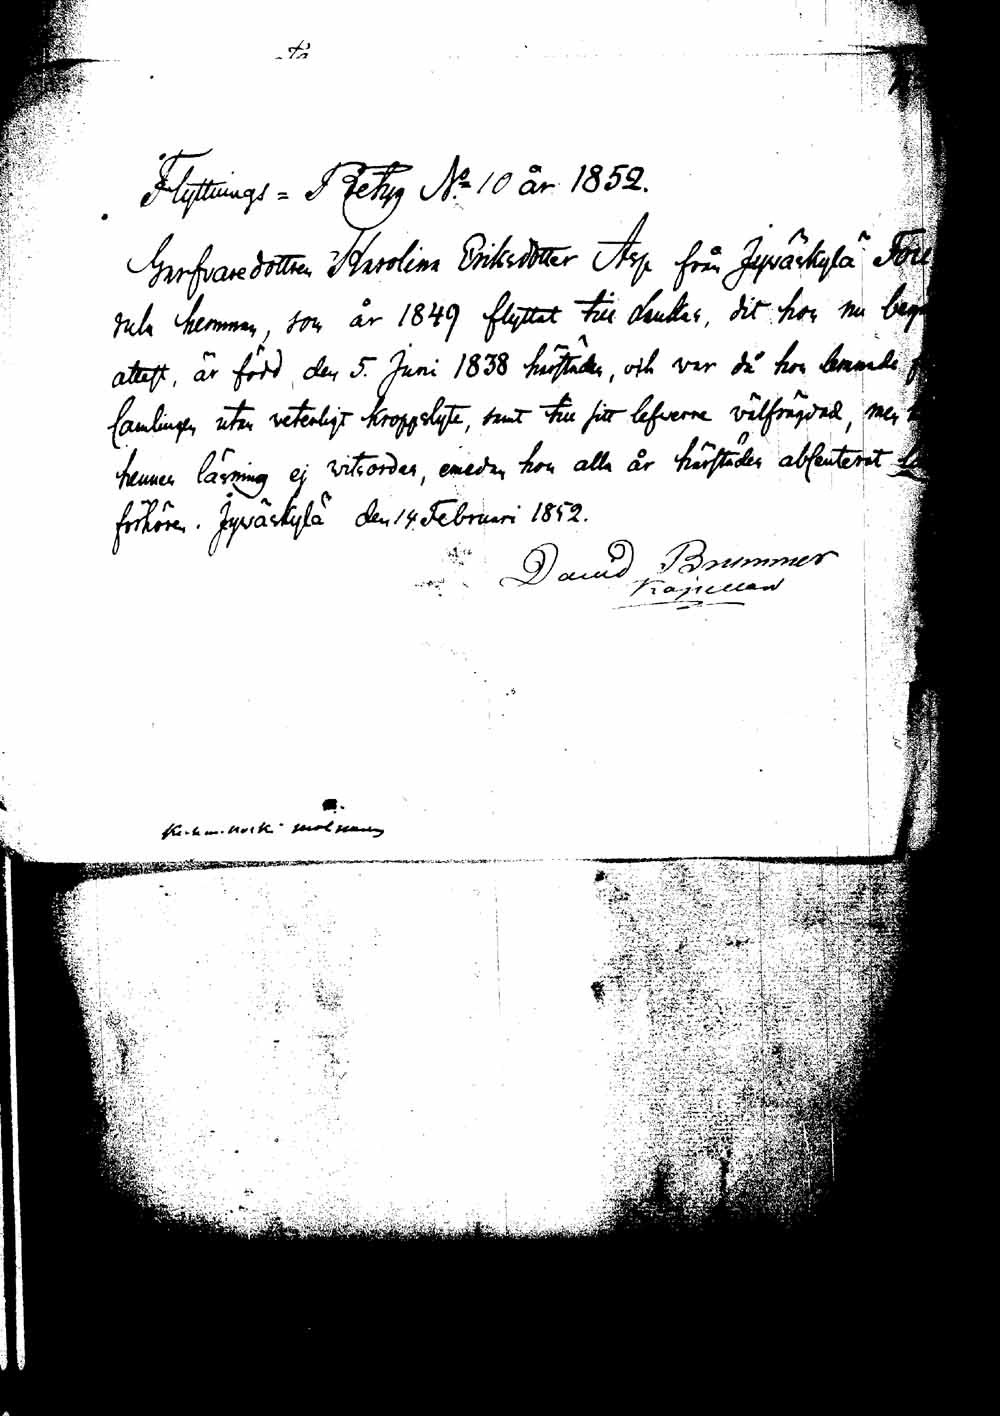 Flyttnings = Betyg No 10 år 1852.
Garfvaredottren Karolina Eriksdotter Asp från Jyväskylä
hemman, som år 1849 flyttat till Laukas, dit hon nu
attest, är född den 5. Juni 1838 härstädes, och var då hon lemnade
samlingen utan veterligt kroppslyte, samt till sitt lefverne välfrägdad, men
hennes läsning ej vitsordas, emedan hon alla år härstädes absenterat
förhören. Jyväskylä den 14 Februari 1852.
David Brummer
Kapellan